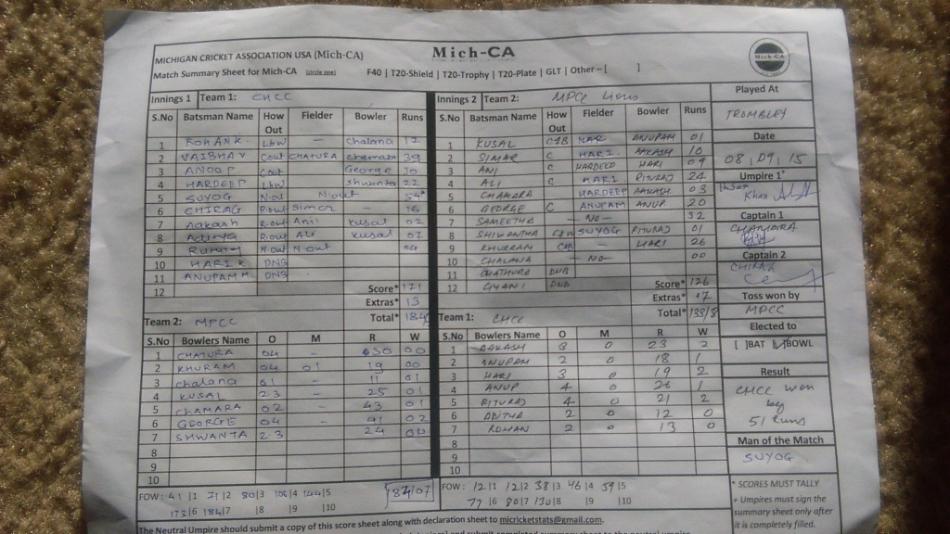 Mich-CA
MICHIGAN CRICKET ASSOCIATION USA (Mich-CA)
Match Summary Sheet for Mich-CA F40 | T20-Shield | T20-Trophy | T20-Plate | GLT | Other – [ ]
Innings 1 Team 1: CHCC
S.No Batsman Name How Out Fielder Bowler Runs
1 ROHAN K. Lbw – Chalana 12
2 VAIBHAV C out CHATURA 39
3 ANOOP George
4 HARDEEP Lbw 22
5 SUYOG N out 54*
6 CHIRAG R.out Simar – 16
7 Aakash R.out Ani Kusal 02
8 R.out Ali Kusal
9 N out N out
10 HARI K DNB
11 ANUPAM M DNB
12
Score* 171
Extras* 13
Total*
Team 2: MPCC
S.No Bowlers Name O M R W
1 CHATURA 04 – 00
2 KHURAM 04 01 19 00
3 chalana 01 – 11 01
4 KUSAL 2.3 – 25 01
5 CHAMARA 02 – 43 01
6 GEORGE 04 – 41 02
7 SHWANTA 2.3 24 00
8
9
10
FOW: 41 |1 71|2 80|3 |4 144|5
|6 184|7 |8 |9 |10
184/07
Innings 2 Team 2: MPCC Lions
S.No Batsman Name How Out Fielder Bowler Runs
1 KUSAL HAR ANUPAM 01
2 SIMAR C HARI AAKASH 10
3 ANI C HARDEEP HARI 09
4 ALI C HARI RITURAJ 24
5 CHAMARA HARDEEP AAKASH 03
6 GEORGE C ANUPAM ANUP 20
7 SAMEETHA – NO – 32
8 SHIWANTHA SUYOG RITURAJ 01
9 KHURRAM – HARI 26
10 CHALANA – NO – 00
11 CHATHURA DNB
12 GYANI DNB
Score* 126
Extras* 07
Total* 133/8
Team 1: CHCC
S.No Bowlers Name O M R W
1 AAKASH 3 0 23 2
2 ANUPAM 2 0 18 1
3 HARI 3 0 19 2
4 ANUP 4 0 26 1
5 RITURAJ 4 0 21 2
6 2 0 12 0
7 ROHAN 2 0 13 0
8
9
10
FOW: 12|1 12|2 38|3 46|4 59|5
77|6 80|7 130|8 |9 |10
Played At
TROMBLEY
Date
08, 09, 15
Umpire 1*
Khan
Captain 1
CHAMARA
Captain 2
CHIRAG
Toss won by
MPCC
Elected to
[ ]BAT [ ]BOWL
Result
CHCC won
by
51 Runs
Man of the Match
SUYOG
* SCORES MUST TALLY
+ Umpires must sign
the summary sheet only after
it is completely filled.
The Neutral Umpire should submit a copy of this score sheet along with declaration sheet to micricketstats@gmail.com.